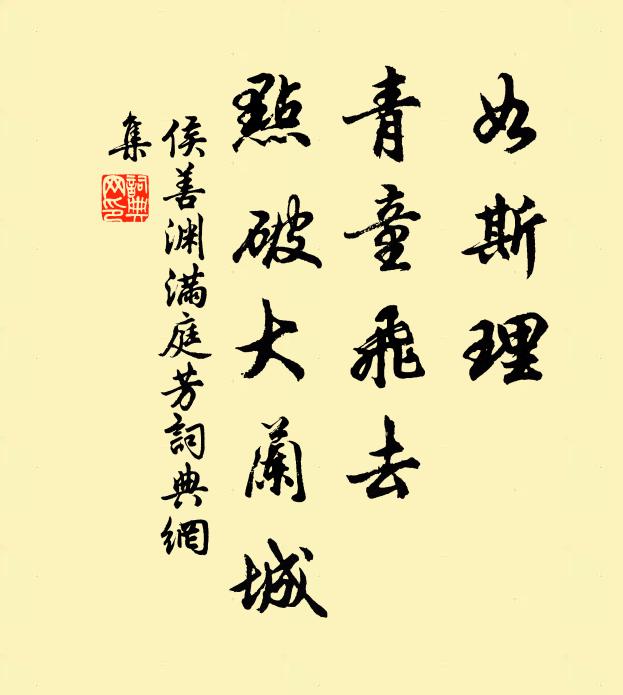 如斯理
青童飛去
點破大蘭城
侯善渊满庭芳詞典網
集
詞典
网印